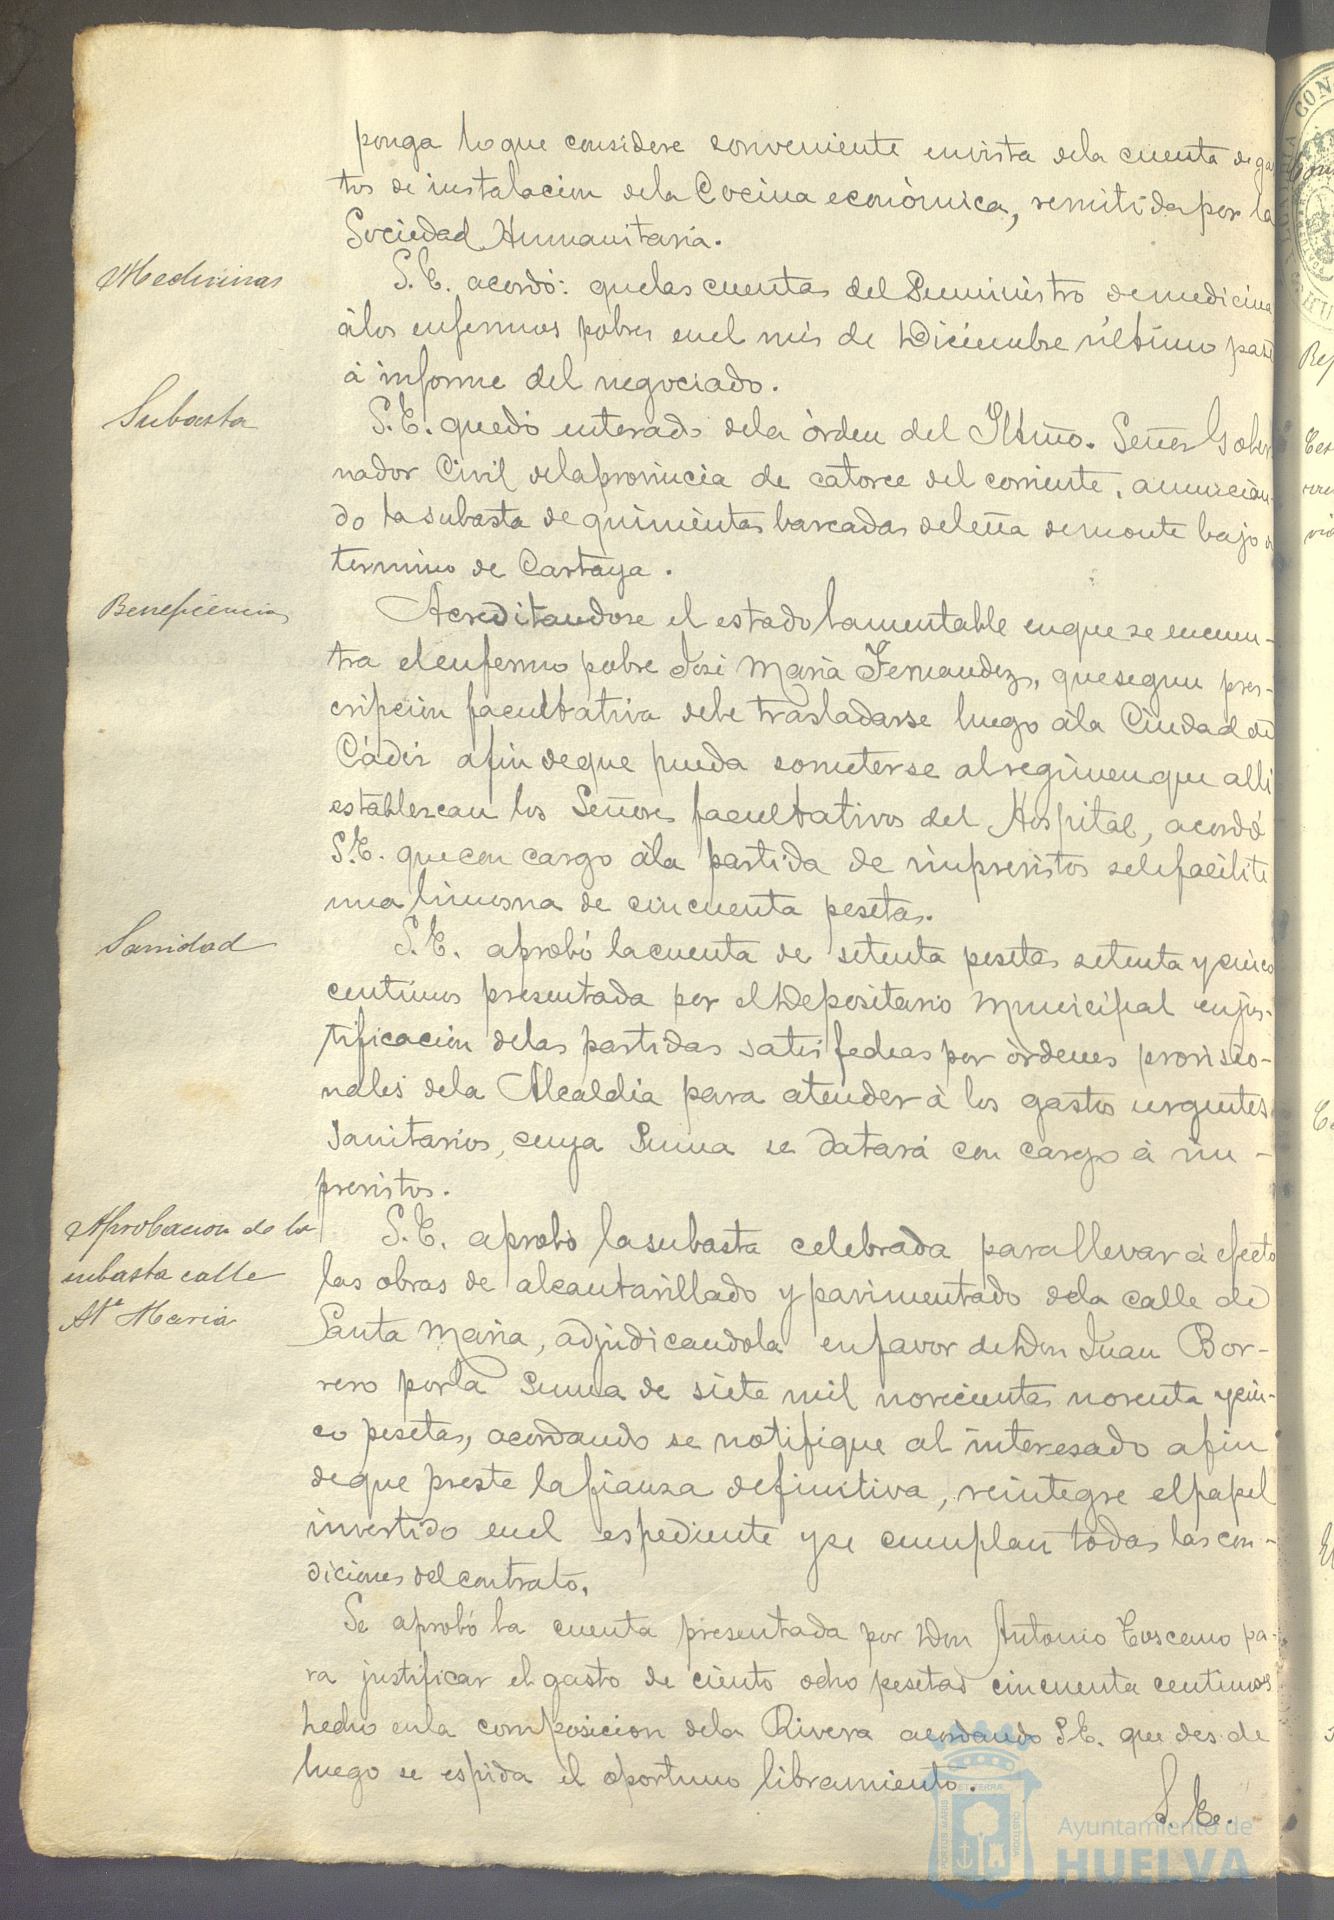 ponga lo que considere conveniente envista dela cuenta de gas
tos de instalacion dela Cocina económica, remitida por la
Sociedad Humanitaria.
Medicinas
S.E. acordó: quelas cuentas del Suministro demedicina
álos enfermos pobres enel mes de Diciembre último pase
á informe del negociado.
Subasta
S.E. quedó enterado dela órden del Iltmo. Señor Gober
nador Civil delaprovincia de catorce del corriente, anuncian-
do la subasta de quinientas barcadas deleña demonte bajo
termino de Cartaya.
Beneficencia
Acreditandose el estado lamentable enque se encuen-
tra elenfermo pobre José Maria Fernandez, quesegun pres-
cripcion facultativa debe trasladarse luego ála Ciudad de
Cádiz afin deque pueda someterse alregimenque alli
establezcan los Señores facultativos del Hospital, acordó
S.E. quecon cargo ála partida de imprevistos selefacilite
una limosna de cincuenta pesetas.
Sanidad
S.E. aprobó lacuenta de setenta pesetas setenta ycinco
centimos presentada por elDepositario Municipal enjus-
tificacion delas partidas satisfechas por órdenes provisio-
nales dela Alcaldia para atender á los gastos urgentes
Sanitarios, cuya Suma se datará con cargo á im-
previstos.
Aprobacion de la
subasta calle
Sta Maria
S.E. aprobó lasubasta celebrada parallevar á efecto
las obras de alcantarillado y pavimentado dela calle de
Santa Maria, adjudicandola enfavor deDon Juan Bor-
rero porla Suma de siete mil novecientas noventa ycin-
co pesetas, acordando se notifique al interesado afin
deque preste lafianza definitiva, reintegre elpapel
invertido enel espediente yse cumplan todas lascon-
diciones delcontrato.
Se aprobó la cuenta presentada por Don Antonio Toscano pa-
ra justificar el gasto de ciento ocho pesetas cincuenta centimos
hecho enla composicion dela Rivera acordando S.E. que des de
luego se espida el oportuno libramiento.
S. E.
Ayuntamiento de
HUELVA